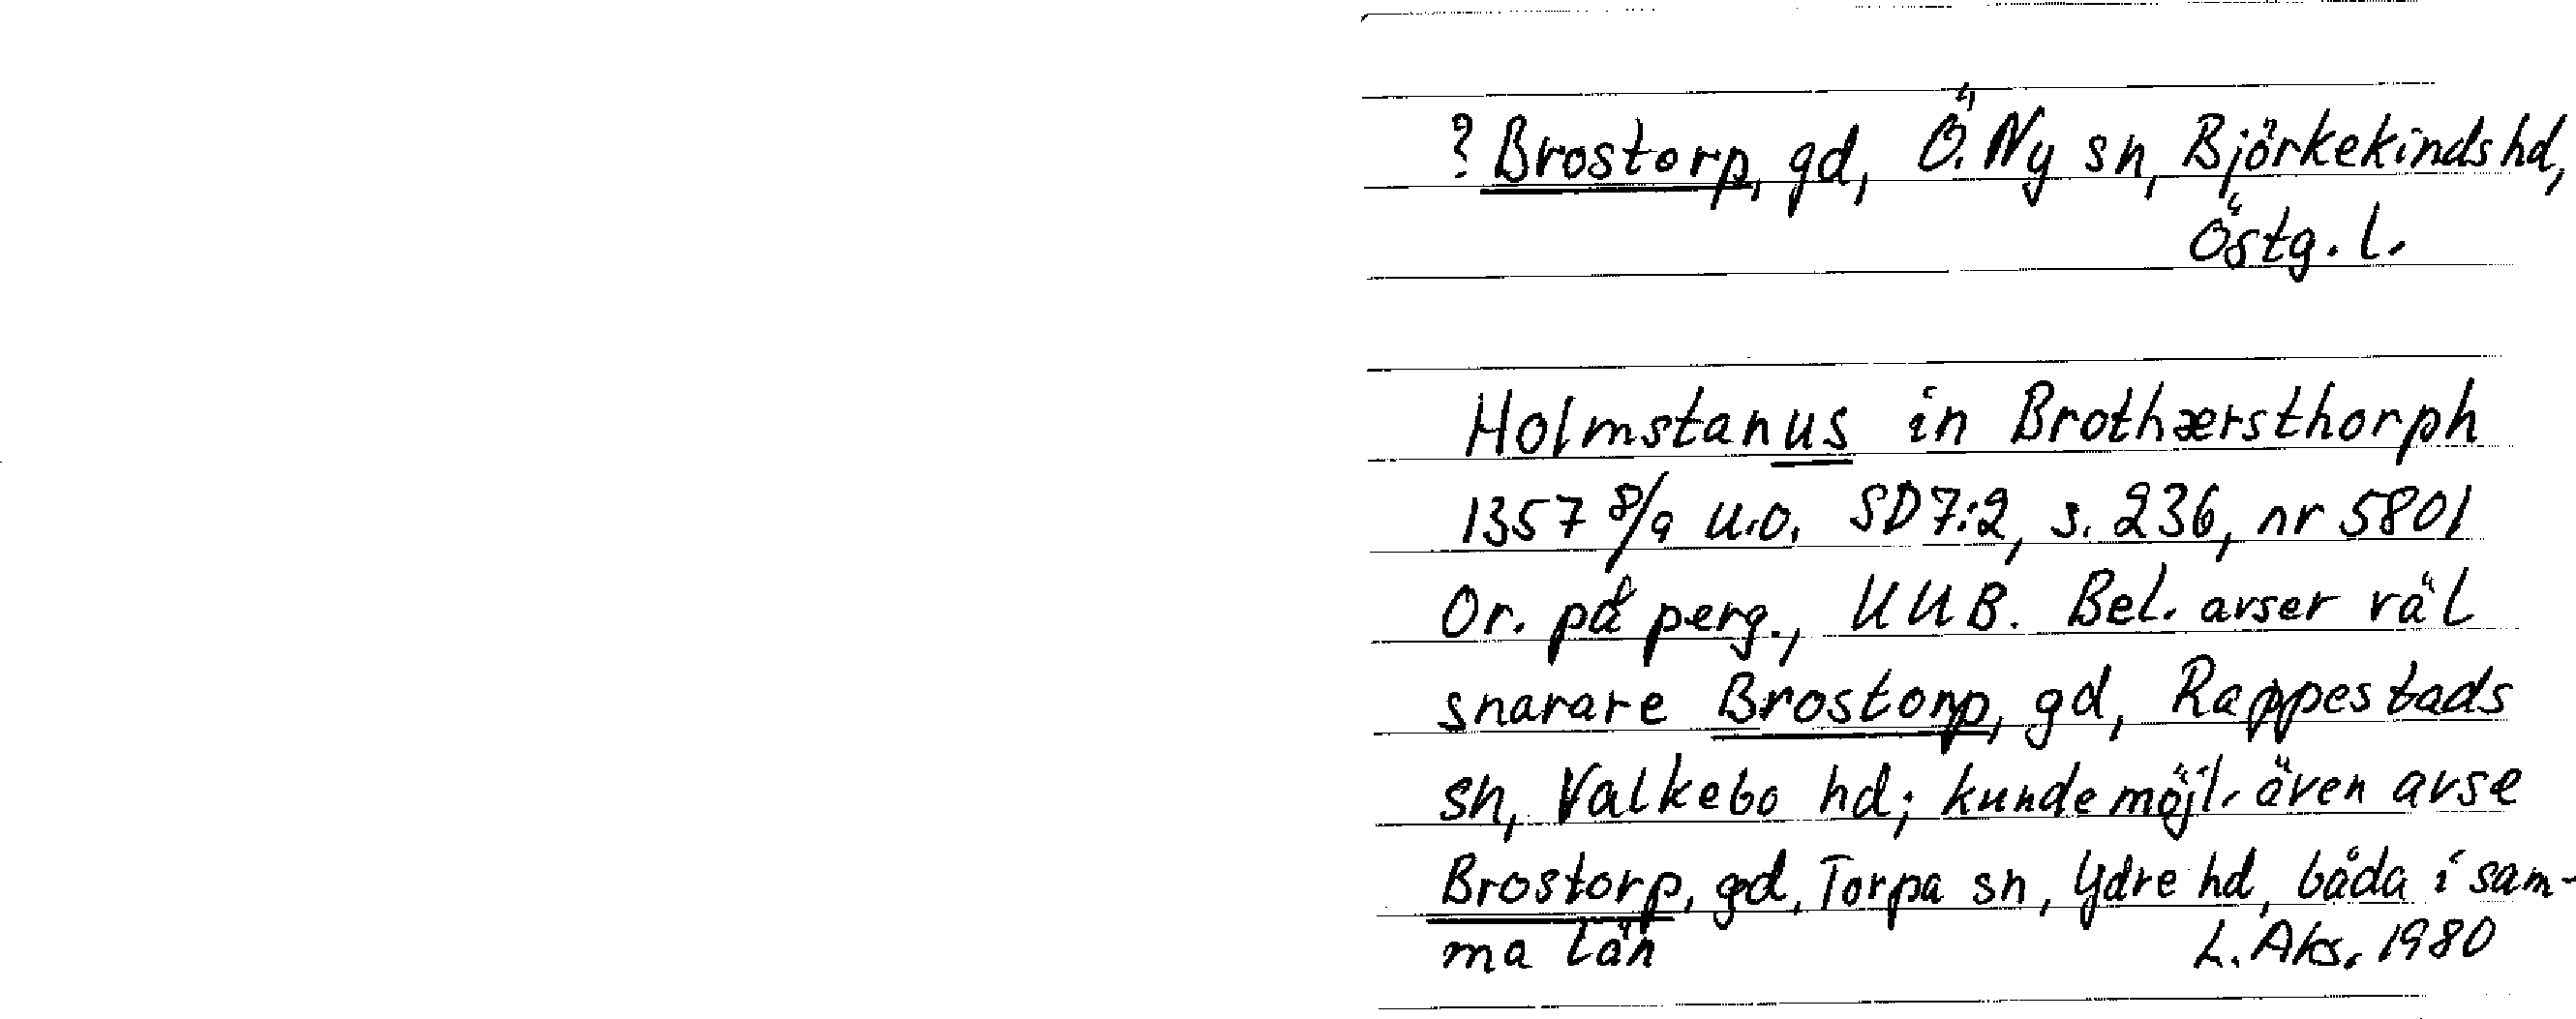 ? Brostorp, gd, Ö. Ny sn, Björkekinds hd,
Östg. l.
Holmstanus in Brothærsthorph
1357 8/9 u.o. SD 7:2, s. 236, nr 5801
Or. på perg., UUB. Bel. avser väl
snarare Brostorp, gd, Rappestads
sn, Valkebo hd; kunde möjl. även avse
Brostorp, gd, Torpa sn, Ydre hd, båda i sam-
ma län L. Aks. 1980